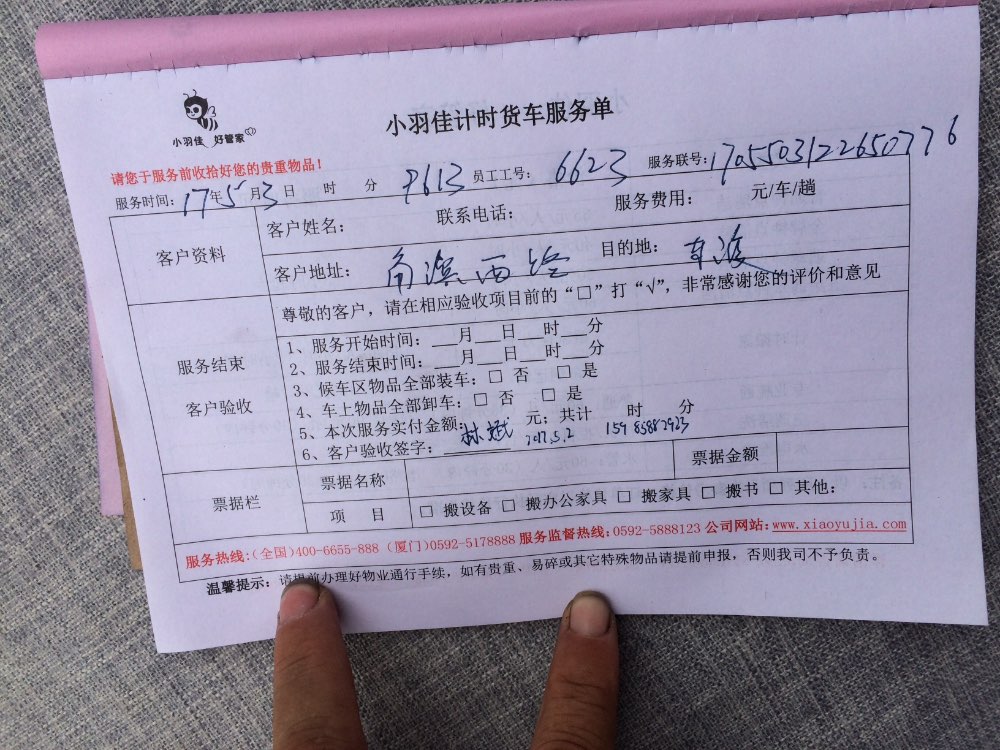 小羽佳 好管家
小羽佳计时货车服务单
请您于服务前收拾好您的贵重物品！
服务时间：17年5月3日 时 分 7613 员工工号：6623 服务联号：1705503122650776
客户资料
客户姓名： 联系电话： 服务费用： 元/车/趟
客户地址： 角滨西路 目的地： 东渡
服务结束
客户验收
尊敬的客户，请在相应验收项目前的“□”打“√”，非常感谢您的评价和意见
1、服务开始时间：___月___日___时___分
2、服务结束时间：___月___日___时___分
3、候车区物品全部装车：□ 否 □ 是
4、车上物品全部卸车：□ 否 □ 是
5、本次服务实付金额： 元；共计 时 分
6、客户验收签字：林斌 2017.5.2 15985882923
票据栏
票据名称 票据金额
项 目 □ 搬设备 □ 搬办公家具 □ 搬家具 □ 搬书 □ 其他：
服务热线：(全国)400-6655-888 (厦门)0592-5178888 服务监督热线：0592-5888123 公司网站：www.xiaoyujia.com
温馨提示：请提前办理好物业通行手续，如有贵重、易碎或其它特殊物品请提前申报，否则我司不予负责。